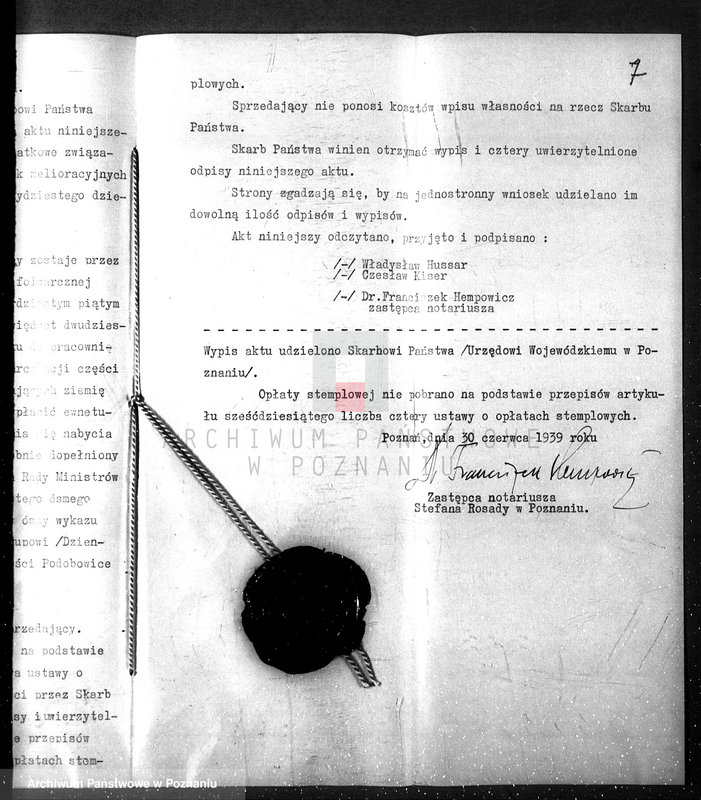 7
powi Państwa
aktu niniejsze-
atkowe związa-
k melioracyjnych
ydziestego dzie-
y zostaje przez
folwarcznej
dziestym piątym
więćset dwudzies-
pracowni-
cji części
jących ziemię
płacić ewnetu-
nia się nabycia
obnie dopełniony
Rady Ministrów
tego ósmego
ósmy wykazu
upowi /Dzien-
ści Podobowice
rzedający.
na podstawie
a ustawy o
ci przez Skarb
sy i uwierzytel-
e przepisów
płatach stem-
plowych.
Sprzedający nie ponosi kosztów wpisu własności na rzecz Skarbu
Państwa.
Skarb Państwa winien otrzymać wypis i cztery uwierzytelnione
odpisy niniejszego aktu.
Strony zgadzają się, by na jednostronny wniosek udzielano im
dowolną ilość odpisów i wypisów.
Akt niniejszy odczytano, przyjęto i podpisano :
/-/ Władysław Hussar
/-/ Czesław Kiser
/-/ Dr.Franciszek Hempowicz
zastępca notariusza
Wypis aktu udzielono Skarbowi Państwa /Urzędowi Wojewódzkiemu w Po-
znaniu/.
Opłaty stemplowej nie pobrano na podstawie przepisów artyku-
łu sześćdziesiątego liczba cztery ustawy o opłatach stemplowych.
Poznań,dnia 30 czerwca 1939 roku
Dr Franciszek Hempowicz
Zastępca notariusza
Stefana Rosady w Poznaniu.
ARCHIWUM PAŃSTWOWE
W POZNANIU
Archiwum Państwowe w Poznaniu